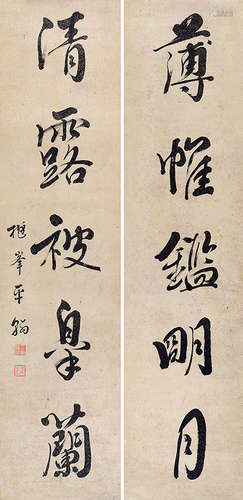 薄帷鑑明月
清露被皋蘭
樾峯平翰